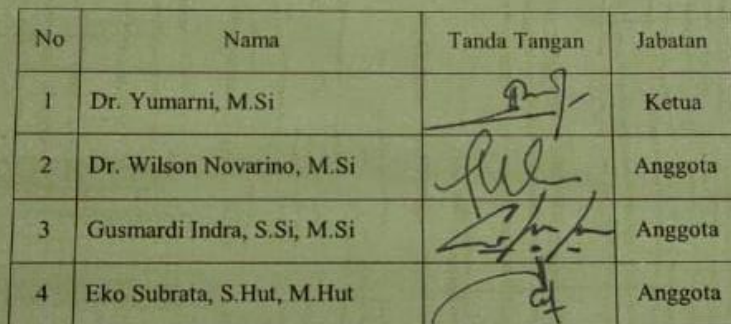 No Nama Tanda Tangan Jabatan
1 Dr. Yumarni, M.Si Ketua
2 Dr. Wilson Novarino, M.Si Anggota
3 Gusmardi Indra, S.Si, M.Si Anggota
4 Eko Subrata, S.Hut, M.Hut Anggota